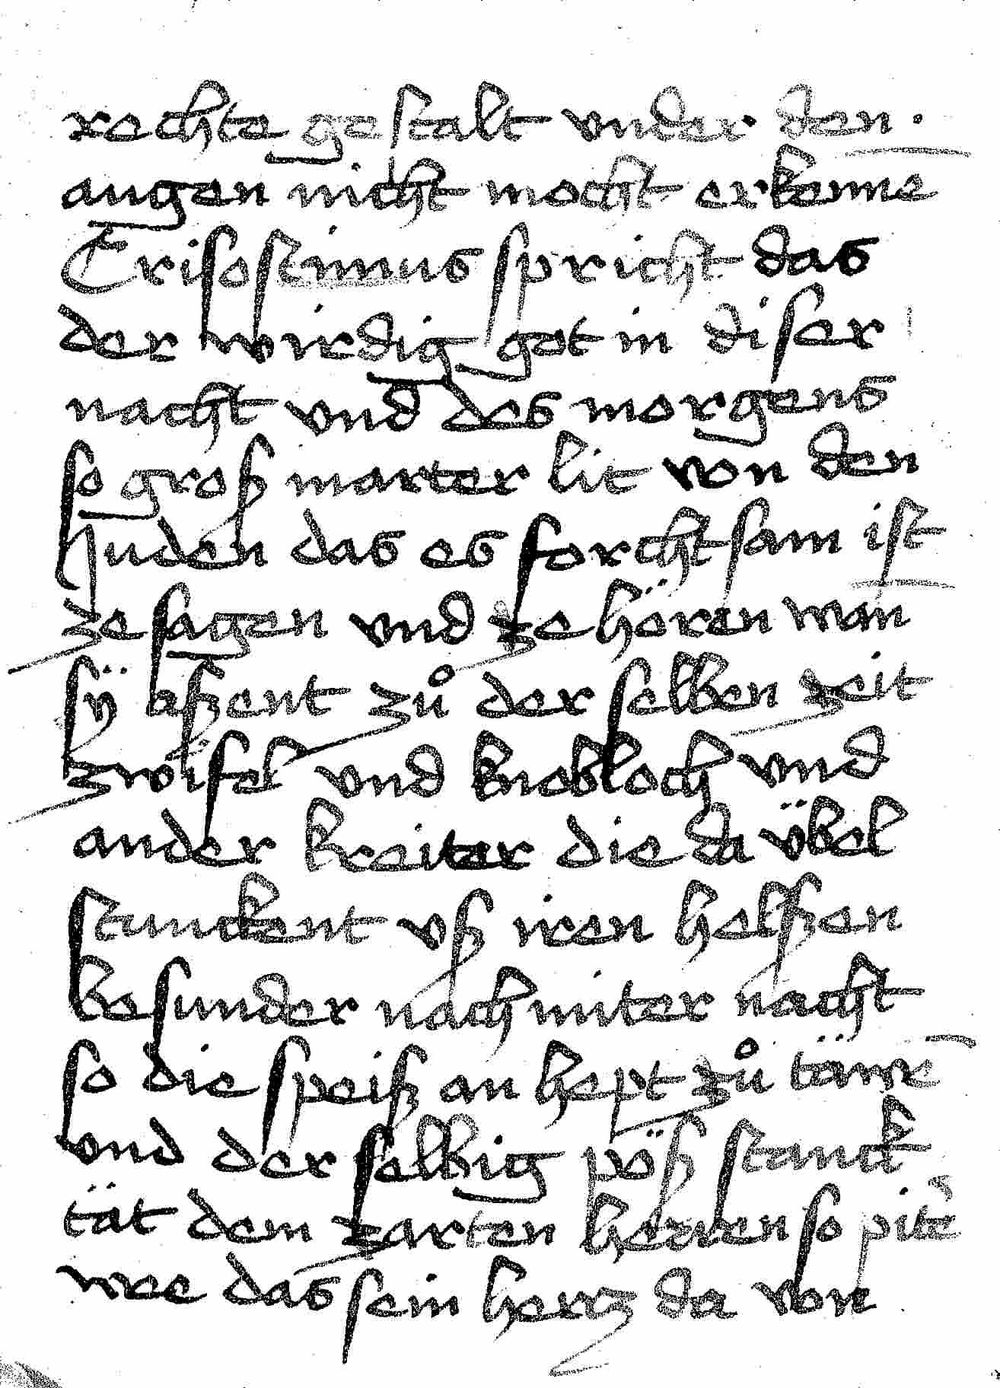 rechte gestalt vnder den.
augen nicht mocht erkenne
Crisostimus spricht das
der wirdig got in diser
nacht vnd des morgens
so groß marter lit von den
Juden das es forchtsam ist
ze sagen vnd ze hören wan
sÿ aßent zů der selben zeit
zwifel vnd knobloch vnd
ander kreiter die da übel
stunckent vß iren helßen
besunder nach miter nacht
so die speiß an hept zů täwē
vnd der selbig pöß stanck
tät dem zarten herren so pitē
wee das sein hertz da von